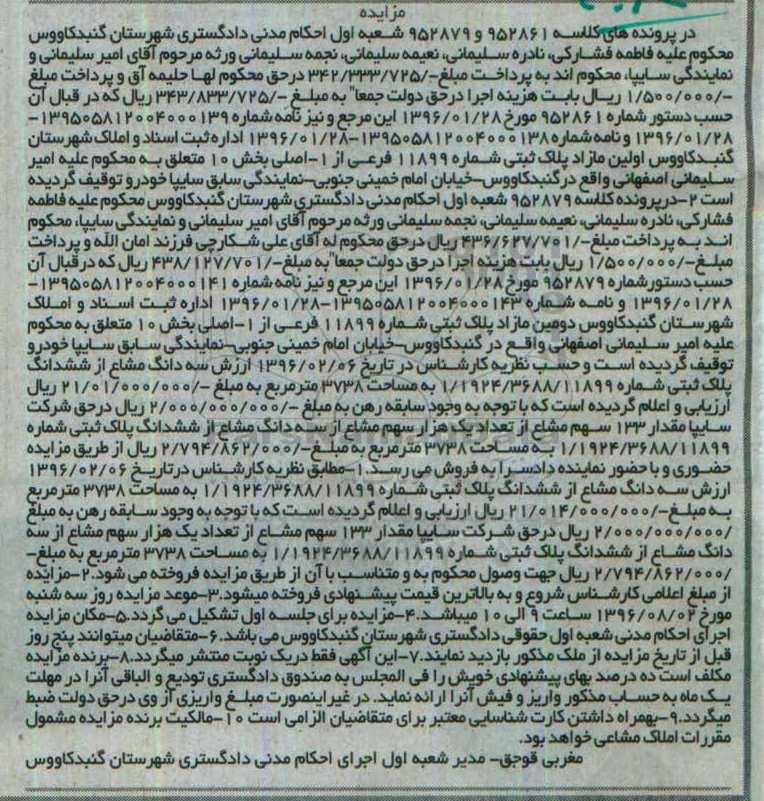 مزایده
در پرونده های کلاسه ۹۵۲۸۶۱ و ۹۵۲۸۷۹ شعبه اول احکام مدنی دادگستری شهرستان گنبدکاووس
محکوم علیه فاطمه فشارکی، نادره سلیمانی، نعیمه سلیمانی، نجمه سلیمانی ورثه مرحوم آقای امیر سلیمانی و
نمایندگی سایپا، محکوم اند به پرداخت مبلغ-/۳۴۲/۳۳۳/۷۲۵ درحق محکوم لها حلیمه آق و پرداخت مبلغ
-/۱/۵۰۰/۰۰۰ ریال بابت هزینه اجرا درحق دولت جمعا" به مبلغ -/۳۴۳/۸۳۳/۷۲۵ ریال که در قبال آن
حسب دستور شماره ۹۵۲۸۶۱ مورخ ۱۳۹۶/۰۱/۲۸ این مرجع و نیز نامه شماره ۱۳۹۵۰۵۸۱۲۰۰۴۰۰۰۱۳۹-
۱۳۹۶/۰۱/۲۸ و نامه شماره ۱۳۹۵۰۵۸۱۲۰۰۴۰۰۰۱۳۸-۱۳۹۶/۰۱/۲۸ اداره ثبت اسناد و املاک شهرستان
گنبدکاووس اولین مازاد پلاک ثبتی شماره ۱۱۸۹۹ فرعی از ۱-اصلی بخش ۱۰ متعلق به محکوم علیه امیر
سلیمانی اصفهانی واقع درگنبدکاووس-خیابان امام خمینی جنوبی-نمایندگی سابق سایپا خودرو توقیف گردیده
است ۲-درپرونده کلاسه ۹۵۲۸۷۹ شعبه اول احکام مدنی دادگستری شهرستان گنبدکاووس محکوم علیه فاطمه
فشارکی، نادره سلیمانی، نعیمه سلیمانی، نجمه سلیمانی ورثه مرحوم آقای امیر سلیمانی و نمایندگی سایپا، محکوم
اند به پرداخت مبلغ-/۴۳۶/۶۲۷/۷۰۱ ریال درحق محکوم له آقای علی شکارچی فرزند امان الله و پرداخت
مبلغ-/۱/۵۰۰/۰۰۰ ریال بابت هزینه اجرا درحق دولت جمعا"به مبلغ-/۴۳۸/۱۲۷/۷۰۱ ریال که درقبال آن
حسب دستورشماره ۹۵۲۸۷۹ مورخ ۱۳۹۶/۰۱/۲۸ این مرجع و نیز نامه شماره ۱۳۹۵۰۵۸۱۲۰۰۴۰۰۰۱۴۱-
۱۳۹۶/۰۱/۲۸ و نامه شماره ۱۳۹۵۰۵۸۱۲۰۰۴۰۰۰۱۴۳-۱۳۹۶/۰۱/۲۸ اداره ثبت اسناد و املاک
شهرستان گنبدکاووس دومین مازاد پلاک ثبتی شماره ۱۱۸۹۹ فرعی از ۱-اصلی بخش ۱۰ متعلق به محکوم
علیه امیر سلیمانی اصفهانی واقع در گنبدکاووس-خیابان امام خمینی جنوبی-نمایندگی سابق سایپا خودرو
توقیف گردیده است و حسب نظریه کارشناس در تاریخ ۱۳۹۶/۰۲/۰۶ ارزش سه دانگ مشاع از ششدانگ
پلاک ثبتی شماره ۱/۱۹۲۴/۳۶۸۸/۱۱۸۹۹ به مساحت ۳۷۳۸ مترمربع به مبلغ -/۲۱/۰۱۴/۰۰۰/۰۰۰ ریال
ارزیابی و اعلام گردیده است که با توجه به وجود سابقه رهن به مبلغ -/۲/۰۰۰/۰۰۰/۰۰۰ ریال درحق شرکت
سایپا مقدار ۱۳۳ سهم مشاع از تعداد یک هزار سهم مشاع از سه دانگ مشاع از ششدانگ پلاک ثبتی شماره
۱/۱۹۲۴/۳۶۸۸/۱۱۸۹۹ به مساحت ۳۷۳۸ مترمربع به مبلغ-/۲/۷۹۴/۸۶۲/۰۰۰ ریال از طریق مزایده
حضوری و با حضور نماینده دادسرا به فروش می رسد.۱-مطابق نظریه کارشناس درتاریخ ۱۳۹۶/۰۲/۰۶
ارزش سه دانگ مشاع از ششدانگ پلاک ثبتی شماره ۱/۱۹۲۴/۳۶۸۸/۱۱۸۹۹ به مساحت ۳۷۳۸ مترمربع
به مبلغ-/۲۱/۰۱۴/۰۰۰/۰۰۰ ریال ارزیابی و اعلام گردیده است که با توجه به وجود سابقه رهن به مبلغ
/۲/۰۰۰/۰۰۰/۰۰۰ ریال درحق شرکت سایپا مقدار ۱۳۳ سهم مشاع از تعداد یک هزار سهم مشاع از سه
دانگ مشاع از ششدانگ پلاک ثبتی شماره ۱/۱۹۲۴/۳۶۸۸/۱۱۸۹۹ به مساحت ۳۷۳۸ مترمربع به مبلغ-
/۲/۷۹۴/۸۶۲/۰۰۰ ریال جهت وصول محکوم به و متناسب با آن از طریق مزایده فروخته می شود.۲-مزایده
از مبلغ اعلامی کارشناس شروع و به بالاترین قیمت پیشنهادی فروخته میشود.۳-موعد مزایده روز سه شنبه
مورخ ۱۳۹۶/۰۸/۰۲ ساعت ۹ الی ۱۰ میباشد.۴-مزایده برای جلسه اول تشکیل می گردد.۵-مکان مزایده
اجرای احکام مدنی شعبه اول حقوقی دادگستری شهرستان گنبدکاووس می باشد.۶-متقاضیان میتوانند پنج روز
قبل از تاریخ مزایده از ملک مذکور بازدید نمایند.۷-این آگهی فقط دریک نوبت منتشر میگردد.۸-برنده مزایده
مکلف است ده درصد بهای پیشنهادی خویش را فی المجلس به صندوق دادگستری تودیع و الباقی آنرا در مهلت
یک ماه به حساب مذکور واریز و فیش آنرا ارائه نماید. در غیر اینصورت مبلغ واریزی از وی درحق دولت ضبط
میگردد.۹-بهمراه داشتن کارت شناسایی معتبر برای متقاضیان الزامی است ۱۰-مالکیت برنده مزایده مشمول
مقررات املاک مشاعی خواهد بود.
مغربی قوجق- مدیر شعبه اول اجرای احکام مدنی دادگستری شهرستان گنبدکاووس